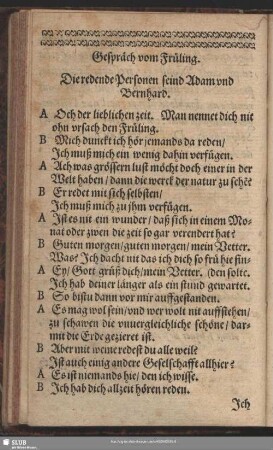 Gespräch vom Früling.
Die redende Personen seind Adam vnd
Bernhard.
A Och der lieblichen zeit. Man nennet dich nit
ohn vrsach den Früling.
B Mich dunckt ich hör jemands da reden/
Ich muß mich ein wenig dahin verfügen.
A Ach was grössern lust möcht doch einer in der
Welt haben/ dann die werck der natur zu sehē?
B Er redet mit sich selbsten/
Ich muß mich zu jhm verfügen.
A Ist es nit ein wunder/ daß sich in einem Mo-
nat oder zwen die zeit so gar verendert hat?
B Guten morgen/ guten morgen/ mein Vetter.
Was? Ich dacht nit das ich dich so früh hie fin-
A Ey/ Gott grüß dich/ mein Vetter. (den solte.
Ich hab deiner länger als ein stund gewartet.
B So bistu dann vor mir auffgestanden.
A Es mag wol sein/ vnd wer wolt nit auffstehen/
zu schawen die vnuergleichliche schöne/ dar-
mit die Erde gezieret ist.
B Aber mit weme redest du alle weil?
Ist auch einig andere Geselschafft allhier?
A Es ist niemands hie/ den ich wisse.
B Ich hab dich allzeit hören reden.
Ich